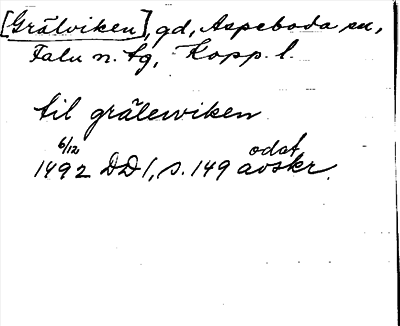 [Grälviken], gd, Aspeboda sn,
Falu n. tg, Kopp. l.
til grälewiken
6/12 odat.
1492 DD 1, s. 149 avskr.